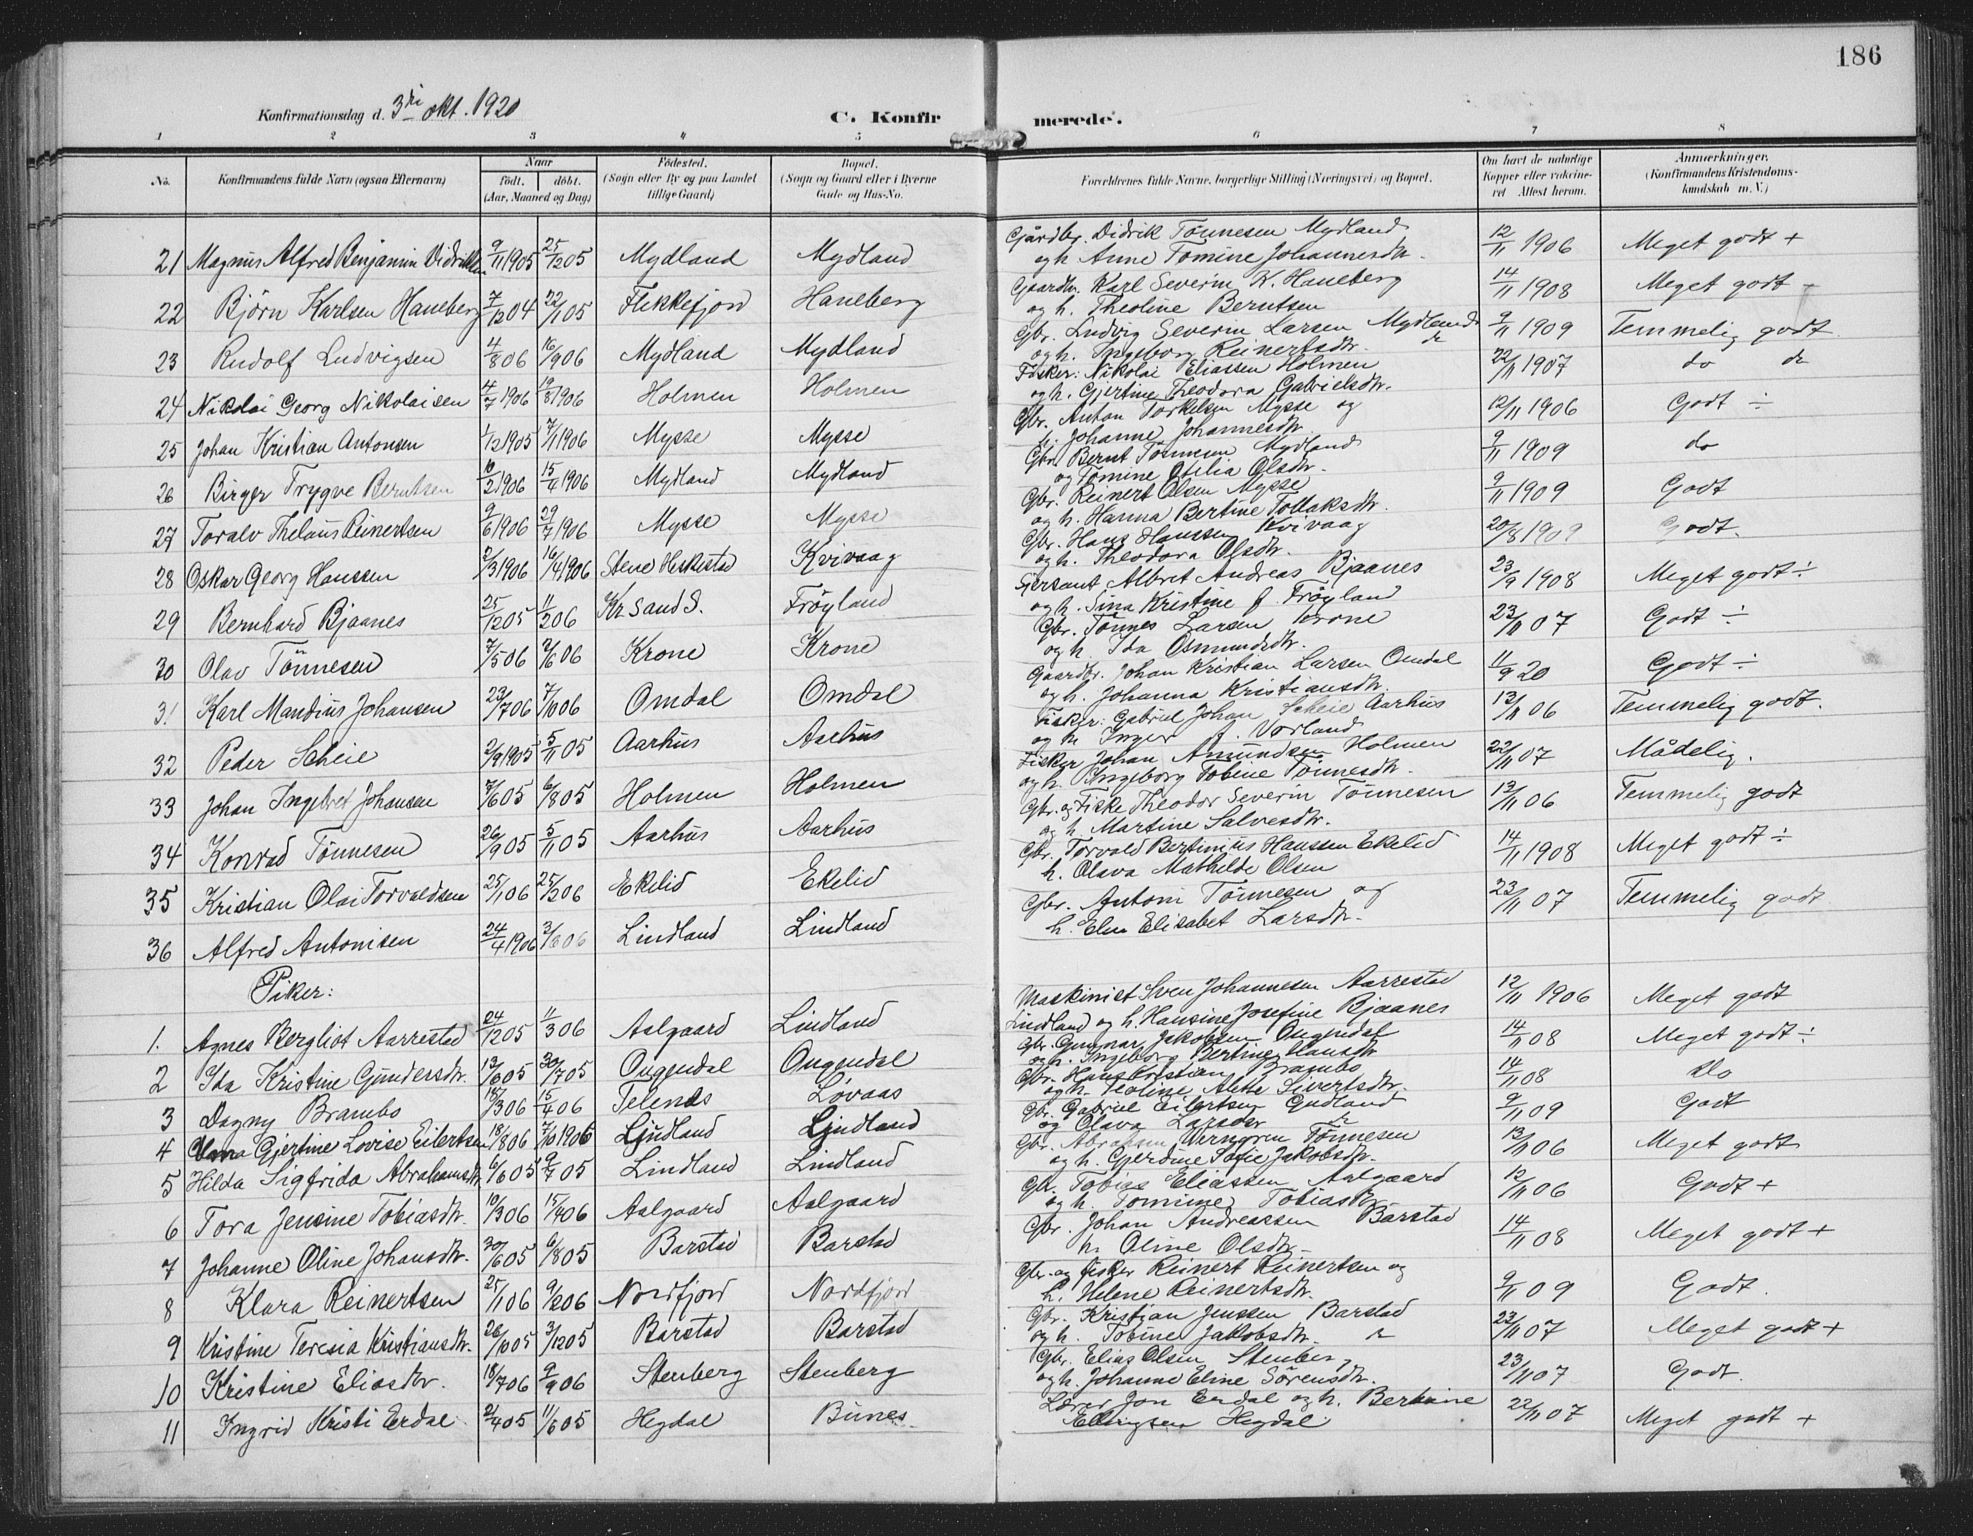 186
Konfirmationsdag d. 3di okt. 1920
C. Konfirmerede.
1 2 3 4 5 6 7 8
No. Konfirmandens fulde Navn (ogsaa Efternavn) Naar født. døbt. (Aar, Maaned og Dag) Fødested. (Sogn eller By og paa Landet tillige Gaard) Bopæl. (Sogn og Gaard eller i Byerne Gade og Hus-No. Forældrenes fulde Navne, borgerlige Stilling (Næringsvei) og Bopæl. Om havt de naturlige Kopper eller vaccineret Attest herom. Anmærkninger. (Konfirmandens Kristendomskundskab m. V.)
21 Magnus Alfred Benjamin Didriksen 9/11 1905 25/12 05 Mydland Mydland Gårdbr. Didrik Tönnesen Mydland og h. Anne Tomine Johannesdtr. 12/11 1906 Meget godt +
22 Björn Karlsen Haneberg 7/12 04 22/1 05 Flekkefjord Haneberg Gaardbr. Karl Severin K. Haneberg og h. Theoline Berntsen 14/11 1908 Meget godt -
23 Rudolf Ludvigsen 4/8 06 16/9 06 Mydland Mydland Gbr. Ludvig Severin Larsen Mydland og h. Ingeborg Reinertsdtr. 9/11 1909 Temmelig godt
24 Nikolai Georg Nikolaisen 4/7 1906 19/8 1906 Holmen Holmen Fisker: Nikolai Eliassen Holmen og h. Gjertine Theodora Gabrielsdtr. 22/11 1907 do do
25 Johan Kristian Antonsen 1/12 1905 7/1 1906 Mysse Mysse Gbr. Anton Torkelsen Mysse og h. Johanne Johannesdtr. 12/11 1906 Godt ÷
26 Birger Trygve Berntsen 10/2 1906 15/4 1906 Mydland Mydland Gbr. Bernt Tönnesen Mydland og Tomine Otilia Olsdtr. 9/11 1909 do
27 Toralv Thelaus Reinertsen 9/6 1906 29/7 1906 Mysse Mysse Gbr. Reinert Olsen Mysse og h. Hanna Bertine Tollaksdtr. 9/11 1909 Godt
28 Oskar Georg Hanssen 2/3 1906 16/4 1906 Stene Heskestad Kvivaag Gbr. Hans Hanssen Kvivaag og h. Theodora Olsdtr. 20/8 1909 Godt.
29 Bernhard Bjaanes 25/12 05 11/2 06 Kr.sand S. Fröyland Sersant Albret Andreas Bjaanes og h. Sina Kristine f. Fröyland 23/9 1908 Meget godt ÷
30 Olav Tönnesen 7/5 06 2/6 06 Krone Krone Gbr. Tönnes Larsen Krone og h. Ida Osmundsdtr. 23/11 07 Godt ÷
31 Karl Mandius Johansen 23/7 06 7/10 06 Omdal Omdal Gaardbr. Johan Kristian Larsen Omdal og h. Johanna Kristiansdtr. 11/9 20 Godt ÷
32 Peder Scheie 2/9 1905 5/11 05 Aarhus Aarhus Fisker: Gabriel Johan Scheie Aarhus og h. Inger f. Vorland 13/11 06 Temmelig godt.
33 Johan Ingebret Johansen 7/6 05 6/8 05 Holmen Holmen Fisker Johan Amundsen Holmen og h. Ingeborg Tobine Tönnesdtr. 22/11 07 Mådelig.
34 Konrad Tönnesen 26/9 05 5/11 05 Aarhus Aarhus Gbr. og Fiske Theodor Severin Tönnesen og h. Martine Salvesdtr. 13/11 06 Temmelig godt
35 Kristian Olai Torvaldsen 25/1 06 25/2 06 Ekelid Ekelid Gbr. Torvald Bertinius Hanssen Ekelid h. Olava Mathilde Olsen 14/11 1908 Meget godt ÷
36 Alfred Antonisen 24/4 1906 3/6 06 Lindland Lindland Gbr. Antoni Tönnesen og h. Elen Elisabet Larsdtr. 23/11 07 Temmelig godt
Piker:
1. Agnes Bergliot Aarrestad 24/12 05 11/3 06 Aalgaard Lindland Maskinist Sven Johannesen Aarrestad Lindland og h. Hansine Josefine Bjaanes 12/11 1906 Meget godt
2 Ida Kristine Gundersdtr. 13/6 05 30/7 05 Ougendal Ougendal Gbr. Gunnar Jakobsen Ougendal og h. Ingeborg Bertine Hansdtr 14/11 08 Meget godt ÷
3 Dagny Brambo 18/3 06 15/4 06 Telenes Løvaas Gbr. Hans Kristian Brambo og h. Teoline Alette Sivertsdtr. 14/11 08 Do
4 Gjertine Lovise Eilertsen 18/8 06 7/10 1906 Ljudland Ljudland Gbr. Gabriel Eilertsen Gudland og Olava Larsdtr 9/11 09 Godt
5 Hilda Sigfrida Abrahamsdtr. 6/6 05 9/7 05 Lindland Lindland Gbr. Abraham Tönnesen og h. Gjerdine Sofie Jakobsdtr. 13/11 06 Meget godt
6 Tora Jensine Tobiasdtr. 10/3 06 15/4 06 Aalgaard Aalgaard Gbr. Tobias Eliassen Aalgaard og h. Tomine Tobiasdtr 12/11 06 Godt +
7 Johanne Oline Johansdtr. 30/6 05 6/8 05 Barstad Barstad Gbr. Johan Andreassen Barstad h. Oline Olsdtr. 14/11 08 Meget godt +
8 Klara Reinertsen 25/1 06 9/2 06 Nordfjord Nordfjord Gbr. og fisker Reinert Reinertsen og h. Helene Reinertsdtr. 9/11 09 Godt.
9 Kristine Teresia Kristiansdtr. 26/10 05 3/12 05 Barstad Barstad Gbr. Kristian Jenssen Barstad og h. Tobine Jakobsdtr. 22/11 07 Meget godt +
10 Kristine Eliasdtr. 18/7 06 9/9 06 Stenberg Stenberg Gbr. Elias Olsen Stenberg og h. Johanne Eline Sörensdtr. 23/11 07 Godt.
11 Ingrid Kristi Erdal 2/4 05 11/6 05 Hegdal Bunes Lærer Jon Erdal og h. Bertine Ellingsen Hegdal 22/11 07 Meget godt +